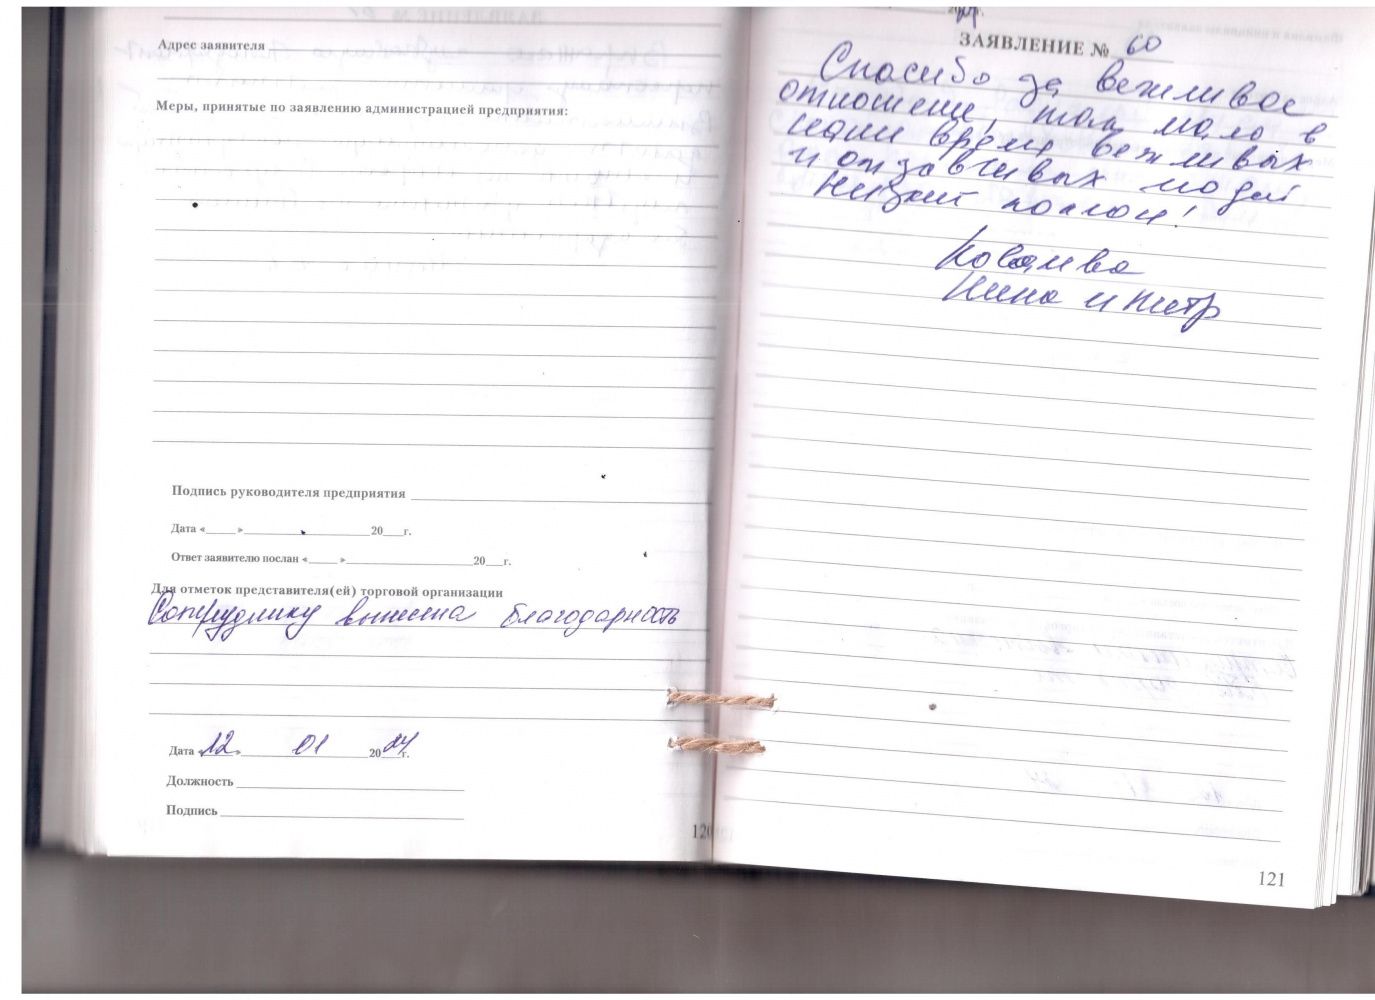 Адрес заявителя
Меры, принятые по заявлению администрацией предприятия:
Подпись руководителя предприятия
Дата «____» ____ 20__г.
Ответ заявителю послан «____» ____ 20__г.
Для отметок представителя(ей) торговой организации
Сотруднику вынесена благодарность
Дата «12» 01 2024г.
Должность
Подпись
120
ЗАЯВЛЕНИЕ № 60
Спасибо за вежливое
отношение, так мало в
наше время вежливых
и отзывчивых людей
Низкий поклон!
Нина и Петр
121